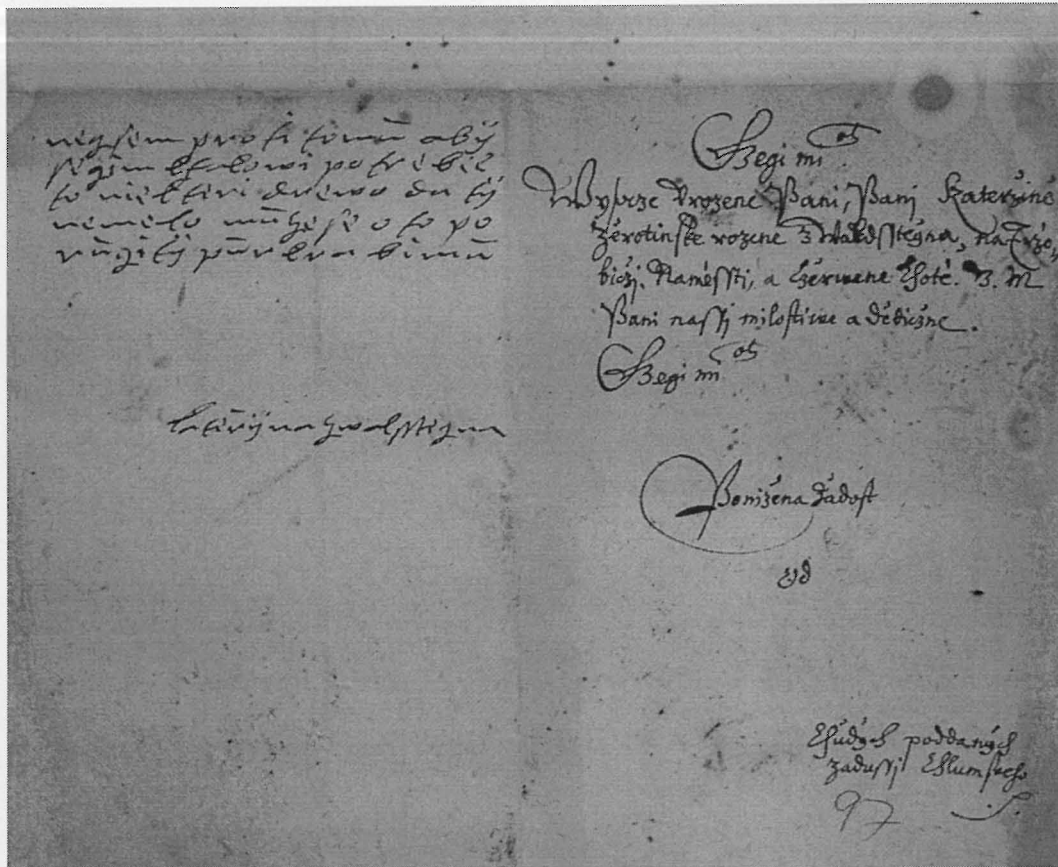 negsem proti tomu aby
se gim k kostelowi potrebie
to niekteri drewo da ty
nemelo muze se o to po
ruczi ty purkrabimu
kateryna z walsstegna
Gegi mi ti
Wysoze Vrozene Pani, Pani Katerzine
Zerotinske rozene z Waldsstegna, na Trze„
biczi, Namiessti, a Czerwene Lhote. B. M.
Pani nassj milostiwe a dediczne.
Gegi mi ti
Ponizena Zadost
Od
Chudych poddanych
zadussj Chlumskeho
97 S.